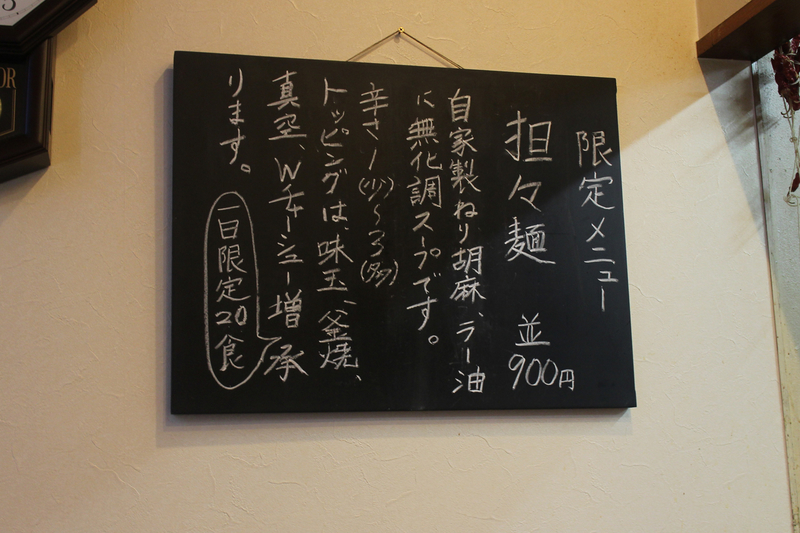 限定メニュー
担々麺 並900円
自家製ねり胡麻、ラー油
に無化調スープです。
辛さ1(少)～3(多)
トッピングは、味玉、釜焼、
真空、Wチャーシュー増承
ります。
一日限定20食
OR